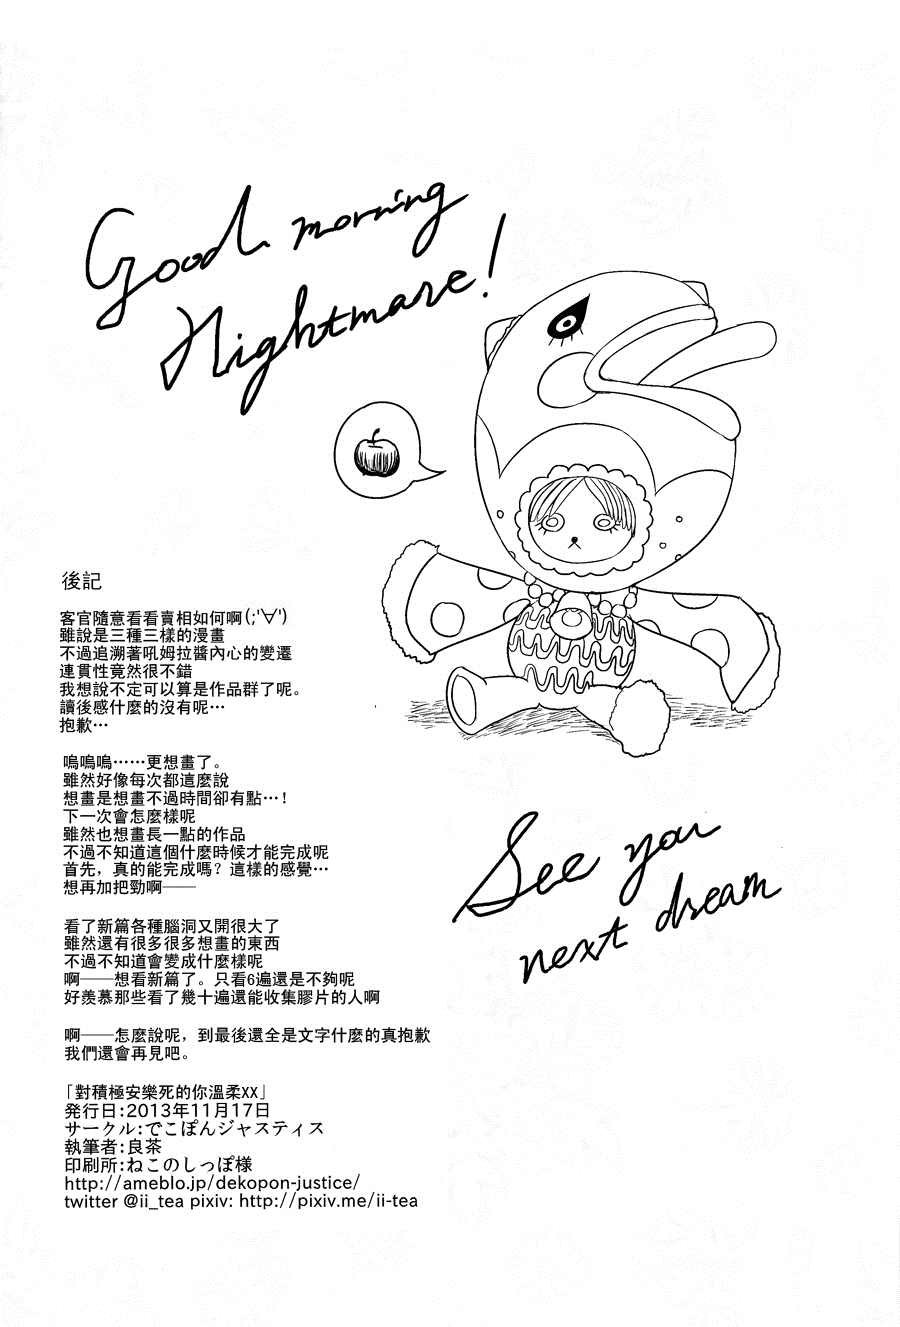 Good morning
Nightmare!
後記
客官隨意看看賣相如何啊(;'∀')
雖說是三種三樣的漫畫
不過追溯著吼姆拉醬內心的變遷
連貫性竟然很不錯
我想說不定可以算是作品群了呢。
讀後感什麼的沒有呢…
抱歉…
嗚嗚嗚……更想畫了。
雖然好像每次都這麼說
想畫是想畫不過時間卻有點…!
下一次會怎麼樣呢
雖然也想畫長一點的作品
不過不知道這個什麼時候才能完成呢
首先，真的能完成嗎？這樣的感覺…
想再加把勁啊——
看了新篇各種腦洞又開很大了
雖然還有很多很多想畫的東西
不過不知道會變成什麼樣呢
啊——想看新篇了。只看6遍還是不夠呢
好羨慕那些看了幾十遍還能收集膠片的人啊
啊——怎麼說呢，到最後還全是文字什麼的真抱歉
我們還會再見吧。
「對積極安樂死的你溫柔XX」
発行日:2013年11月17日
サークル:でこぽんジャスティス
執筆者:良茶
印刷所:ねこのしっぽ様
http://ameblo.jp/dekopon-justice/
twitter @ii_tea pixiv: http://pixiv.me/ii-tea
See you
next dream